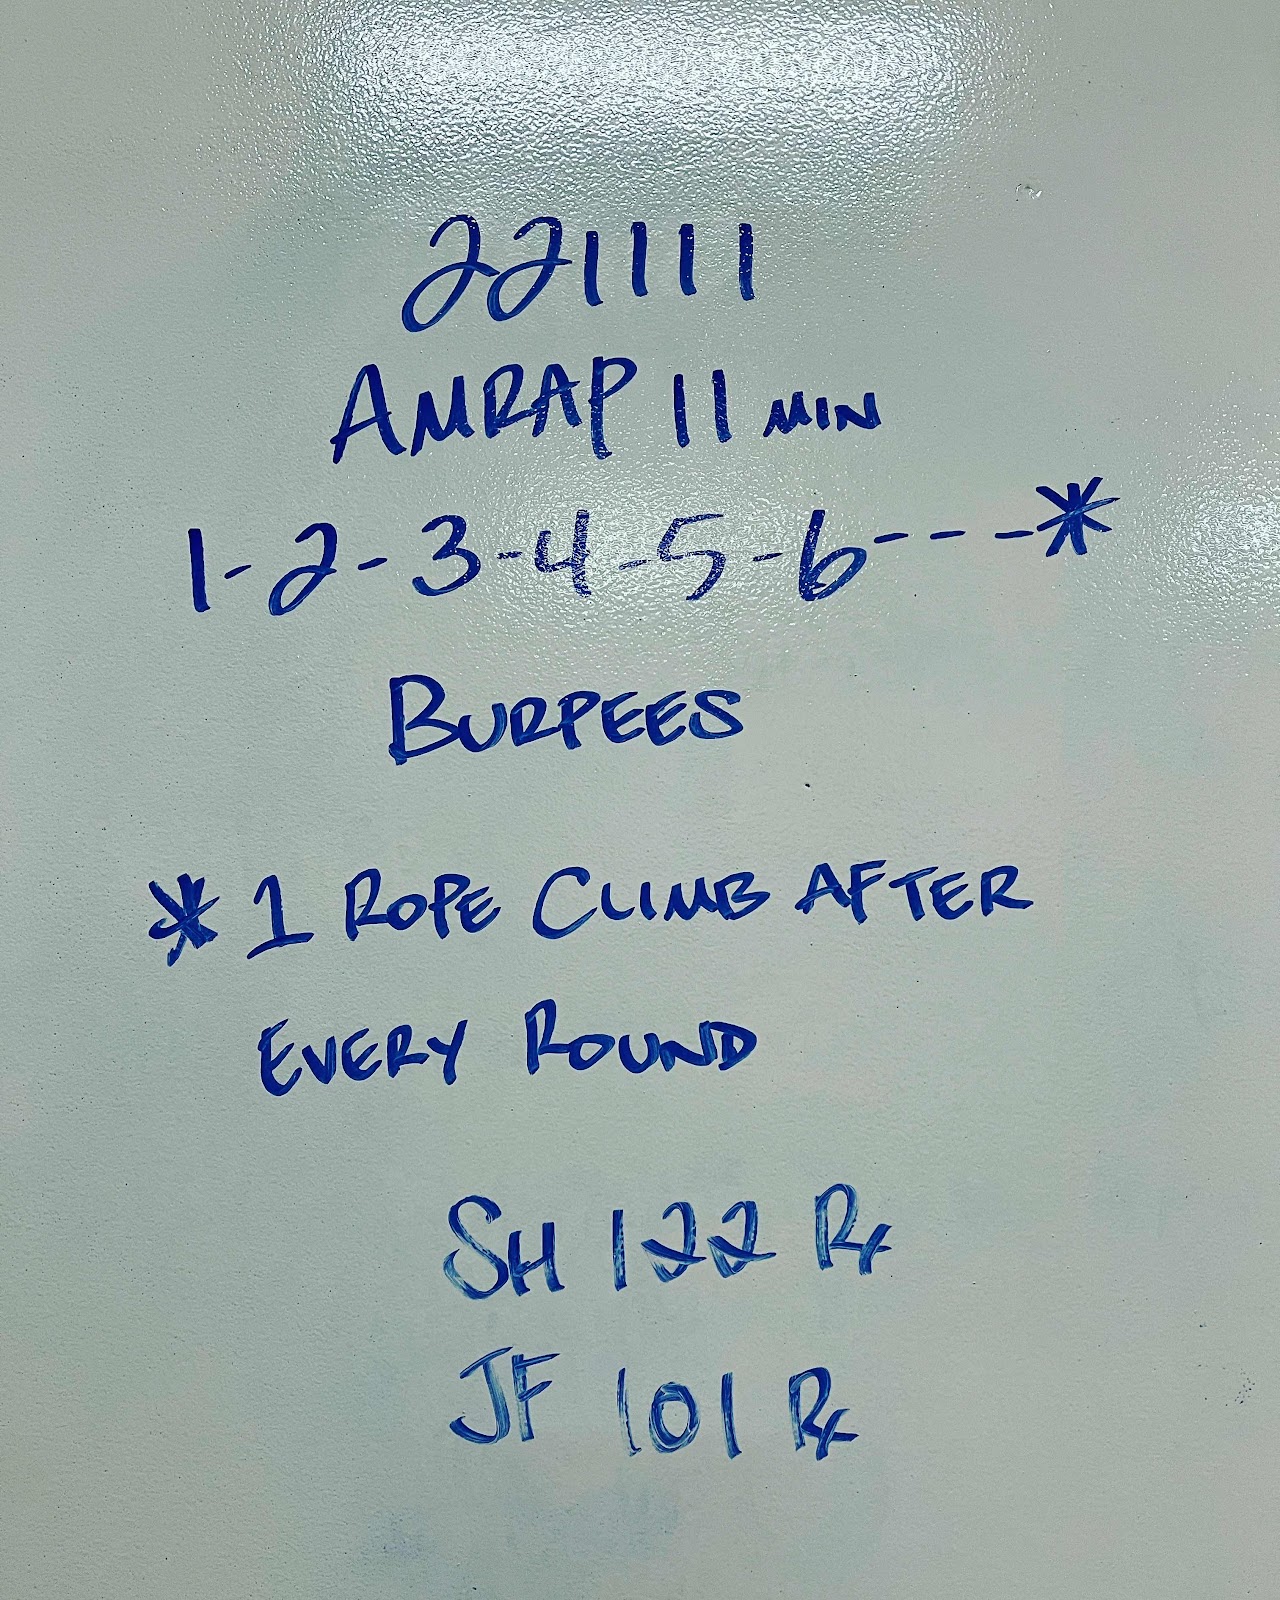 221111
AMRAP 11 MIN
1-2-3-4-5-6---*
BURPEES
* 1 ROPE CLIMB AFTER
EVERY ROUND
SH 122 Rx
JF 101 Rx